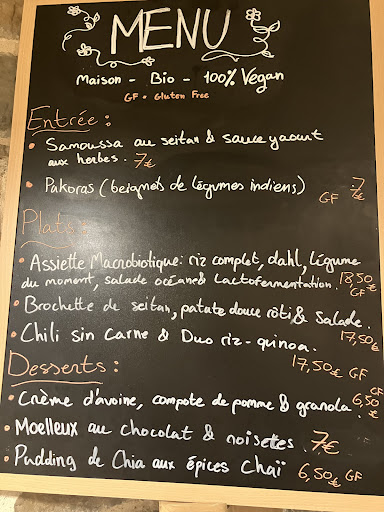 MENU
Maison - Bio - 100% Vegan
GF = Gluten Free
Entrée :
• Samoussa au seitan & sauce yaourt
aux herbes. 7€
• Pakoras (beignets de légumes indiens) 7€
GF
Plats :
• Assiette Macrobiotique: riz complet, dahl, légume
du moment, salade océane & Lactofermentation. 18,50€
GF
• Brochette de seitan, patate douce rôti & Salade.
17,50€
• Chili sin Carne & Duo riz-quinoa.
17,50€ GF
Desserts :
GF
• Crème d'avoine, compote de pomme & granola. 6,50€
• Moelleux au chocolat & noisettes. 7€
• Pudding de Chia aux épices Chaï 6,50€ GF